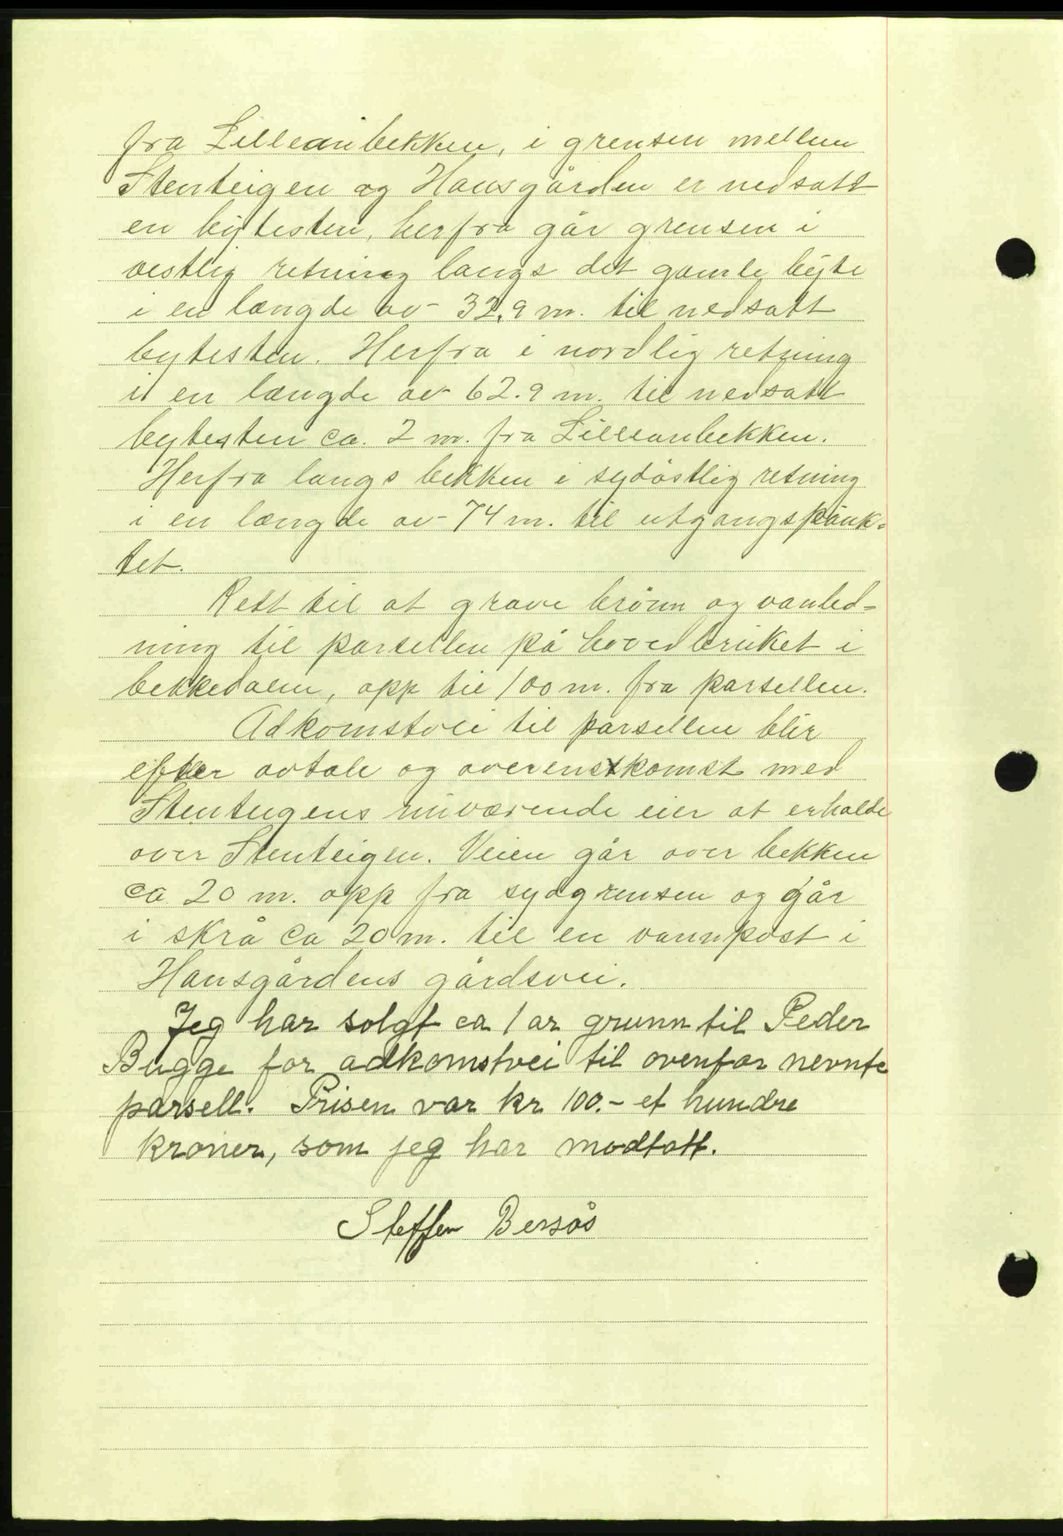 fra Lilleaubekken, i grensen mellem
Stenteigen og Hansgården er nedsatt
en bytesten, herfra går grensen i
vestlig retning langs det gamle byte
i en længde av 32,9 m. til nedsatt
bytesten. Herfra i nordlig retning
i en længde av 62.9 m. til nedsatt
bytesten ca. 2 m. fra Lilleaubekken.
Herfra langs bekken i sydöstlig retning
i en længde av 74 m. til utgangspunk-
tet.
Rett til at grave brönn og vanled-
ning til parsellen på hovedbruket i
bekkedalen, opp til 100 m. fra parsellen.
Adkomstvei til parsellen blir
efter avtale og overenskomst med
Stenteigens nuværende eier at erholde
over Stenteigen. Veien går over bekken
ca 20 m. opp fra sydgrensen og går
i skrå ca 20 m. til en vannpost i
Hansgårdens gårdsvei.
Jeg har solgt ca 1 ar grunn til Peder
Bugge for adkomstvei til ovenfor nevnte
parsell. Prisen var kr 100.- et hundre
kroner, som jeg har modtatt.
Steffen Bersås